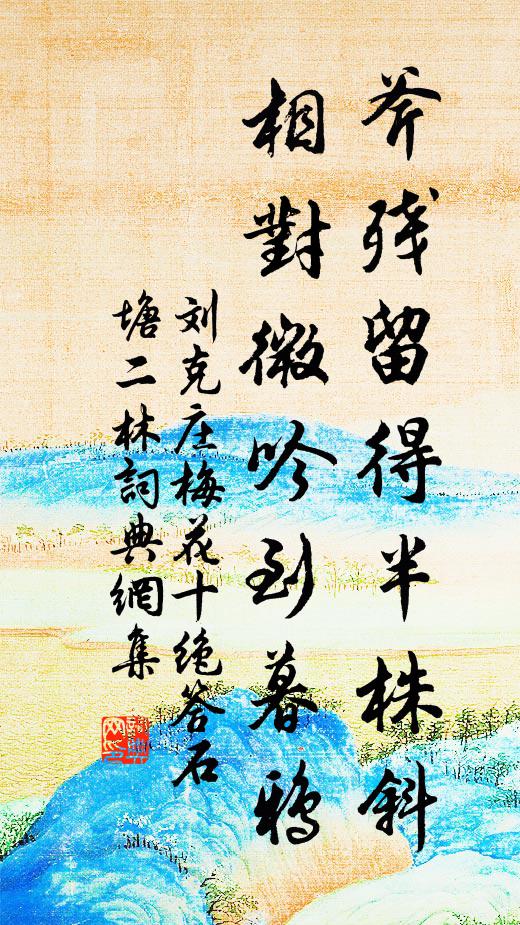 斧残留得半株斜
相對微吟到暮鴉
刘克庄梅花十绝答石
塘二林詞典網集